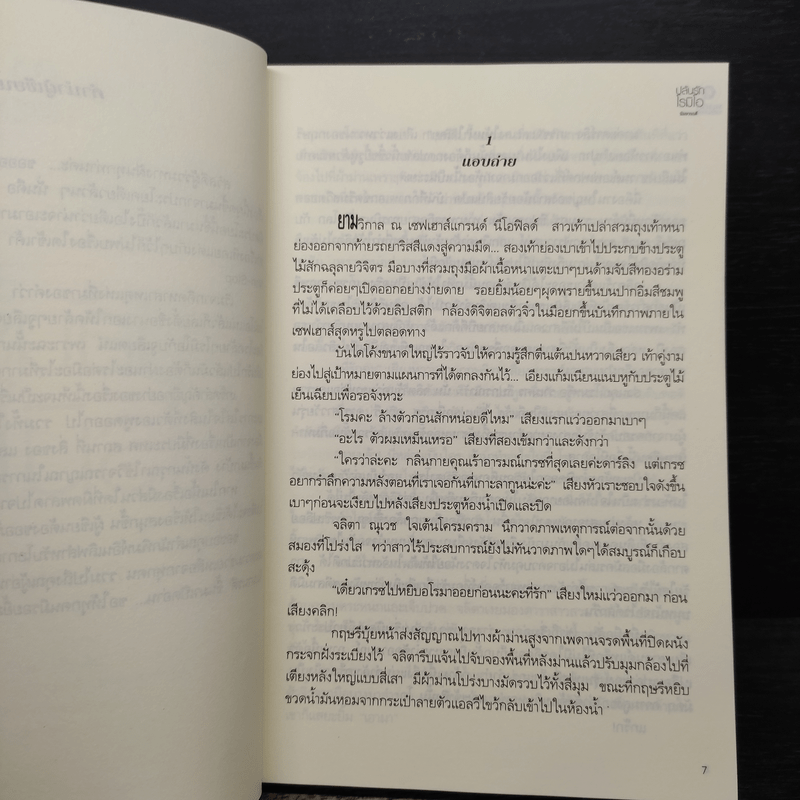 ปล้นรัก
โรมิโอ
1
แอบถ่าย
ยามวิกาล ณ เซฟเฮาส์แกรนด์ นีโอฟิลด์ สาวเท้าเปล่าสวมถุงเท้าหนา
ย่องออกจากท้ายรถยาริสสีแดงสู่ความมืด... สองเท้าย่องเบาเข้าไปประกบข้างประตู
ไม้สักฉลุลายวิจิตร มือบางที่สวมถุงมือผ้าเนื้อหนาแตะเบาๆบนด้ามจับสีทองอร่าม
ประตูก็ค่อยๆเปิดออกอย่างง่ายดาย รอยยิ้มน้อยๆผุดพรายขึ้นบนปากอิ่มสีชมพู
ที่ไม่ได้เคลือบไว้ด้วยลิปสติก กล้องดิจิตอลตัวจิ๋วในมือยกขึ้นบันทึกภาพภายใน
เซฟเฮาส์สุดหรูไปตลอดทาง
บันไดโค้งขนาดใหญ่ไร้ราวจับให้ความรู้สึกตื่นเต้นปนหวาดเสียว เท้าคู่งาม
ย่องไปสู่เป้าหมายตามแผนการที่ได้ตกลงกันไว้... เอียงแก้มเนียนแนบหูกับประตูไม้
เย็นเฉียบเพื่อรอจังหวะ
“โรมคะ ล้างตัวก่อนสักหน่อยดีไหม” เสียงแรกแว่วออกมาเบาๆ
“อะไร ตัวผมเหม็นเหรอ” เสียงที่สองเข้มกว่าและดังกว่า
“ใครว่าล่ะคะ กลิ่นกายคุณเร้าอารมณ์เกรซที่สุดเลยค่ะดาร์ลิง แต่เกรซ
อยากรำลึกความหลังตอนที่เราเจอกันที่เกาะลากูนน่ะค่ะ” เสียงหัวเราะชอบใจดังขึ้น
เบาๆก่อนจะเงียบไปหลังเสียงประตูห้องน้ำเปิดและปิด
จลิตา ณุเวช ใจเต้นโครมคราม นึกวาดภาพเหตุการณ์ต่อจากนั้นด้วย
สมองที่โปร่งใส ทว่าสาวไร้ประสบการณ์ยังไม่ทันวาดภาพใดๆได้สมบูรณ์ก็เกือบ
สะดุ้ง
“เดี๋ยวเกรซไปหยิบอโรมาออยก่อนนะคะที่รัก” เสียงใหม่แว่วออกมา ก่อน
เสียงคลิก!
กฤษรีบุ้ยหน้าส่งสัญญาณไปทางผ้าม่านสูงจากเพดานจรดพื้นที่ปิดผนัง
กระจกฝั่งระเบียงไว้ จลิตารีบแจ้นไปจับจองพื้นที่หลังม่านแล้วปรับมุมกล้องไปที่
เตียงหลังใหญ่แบบสี่เสา มีผ้าม่านโปร่งบางมัดรวบไว้ทั้งสี่มุม ขณะที่กฤษรีหยิบ
ขวดน้ำมันหอมจากกระเป๋าลายตัวแอลวีไขว้กลับเข้าไปในห้องน้ำ
7